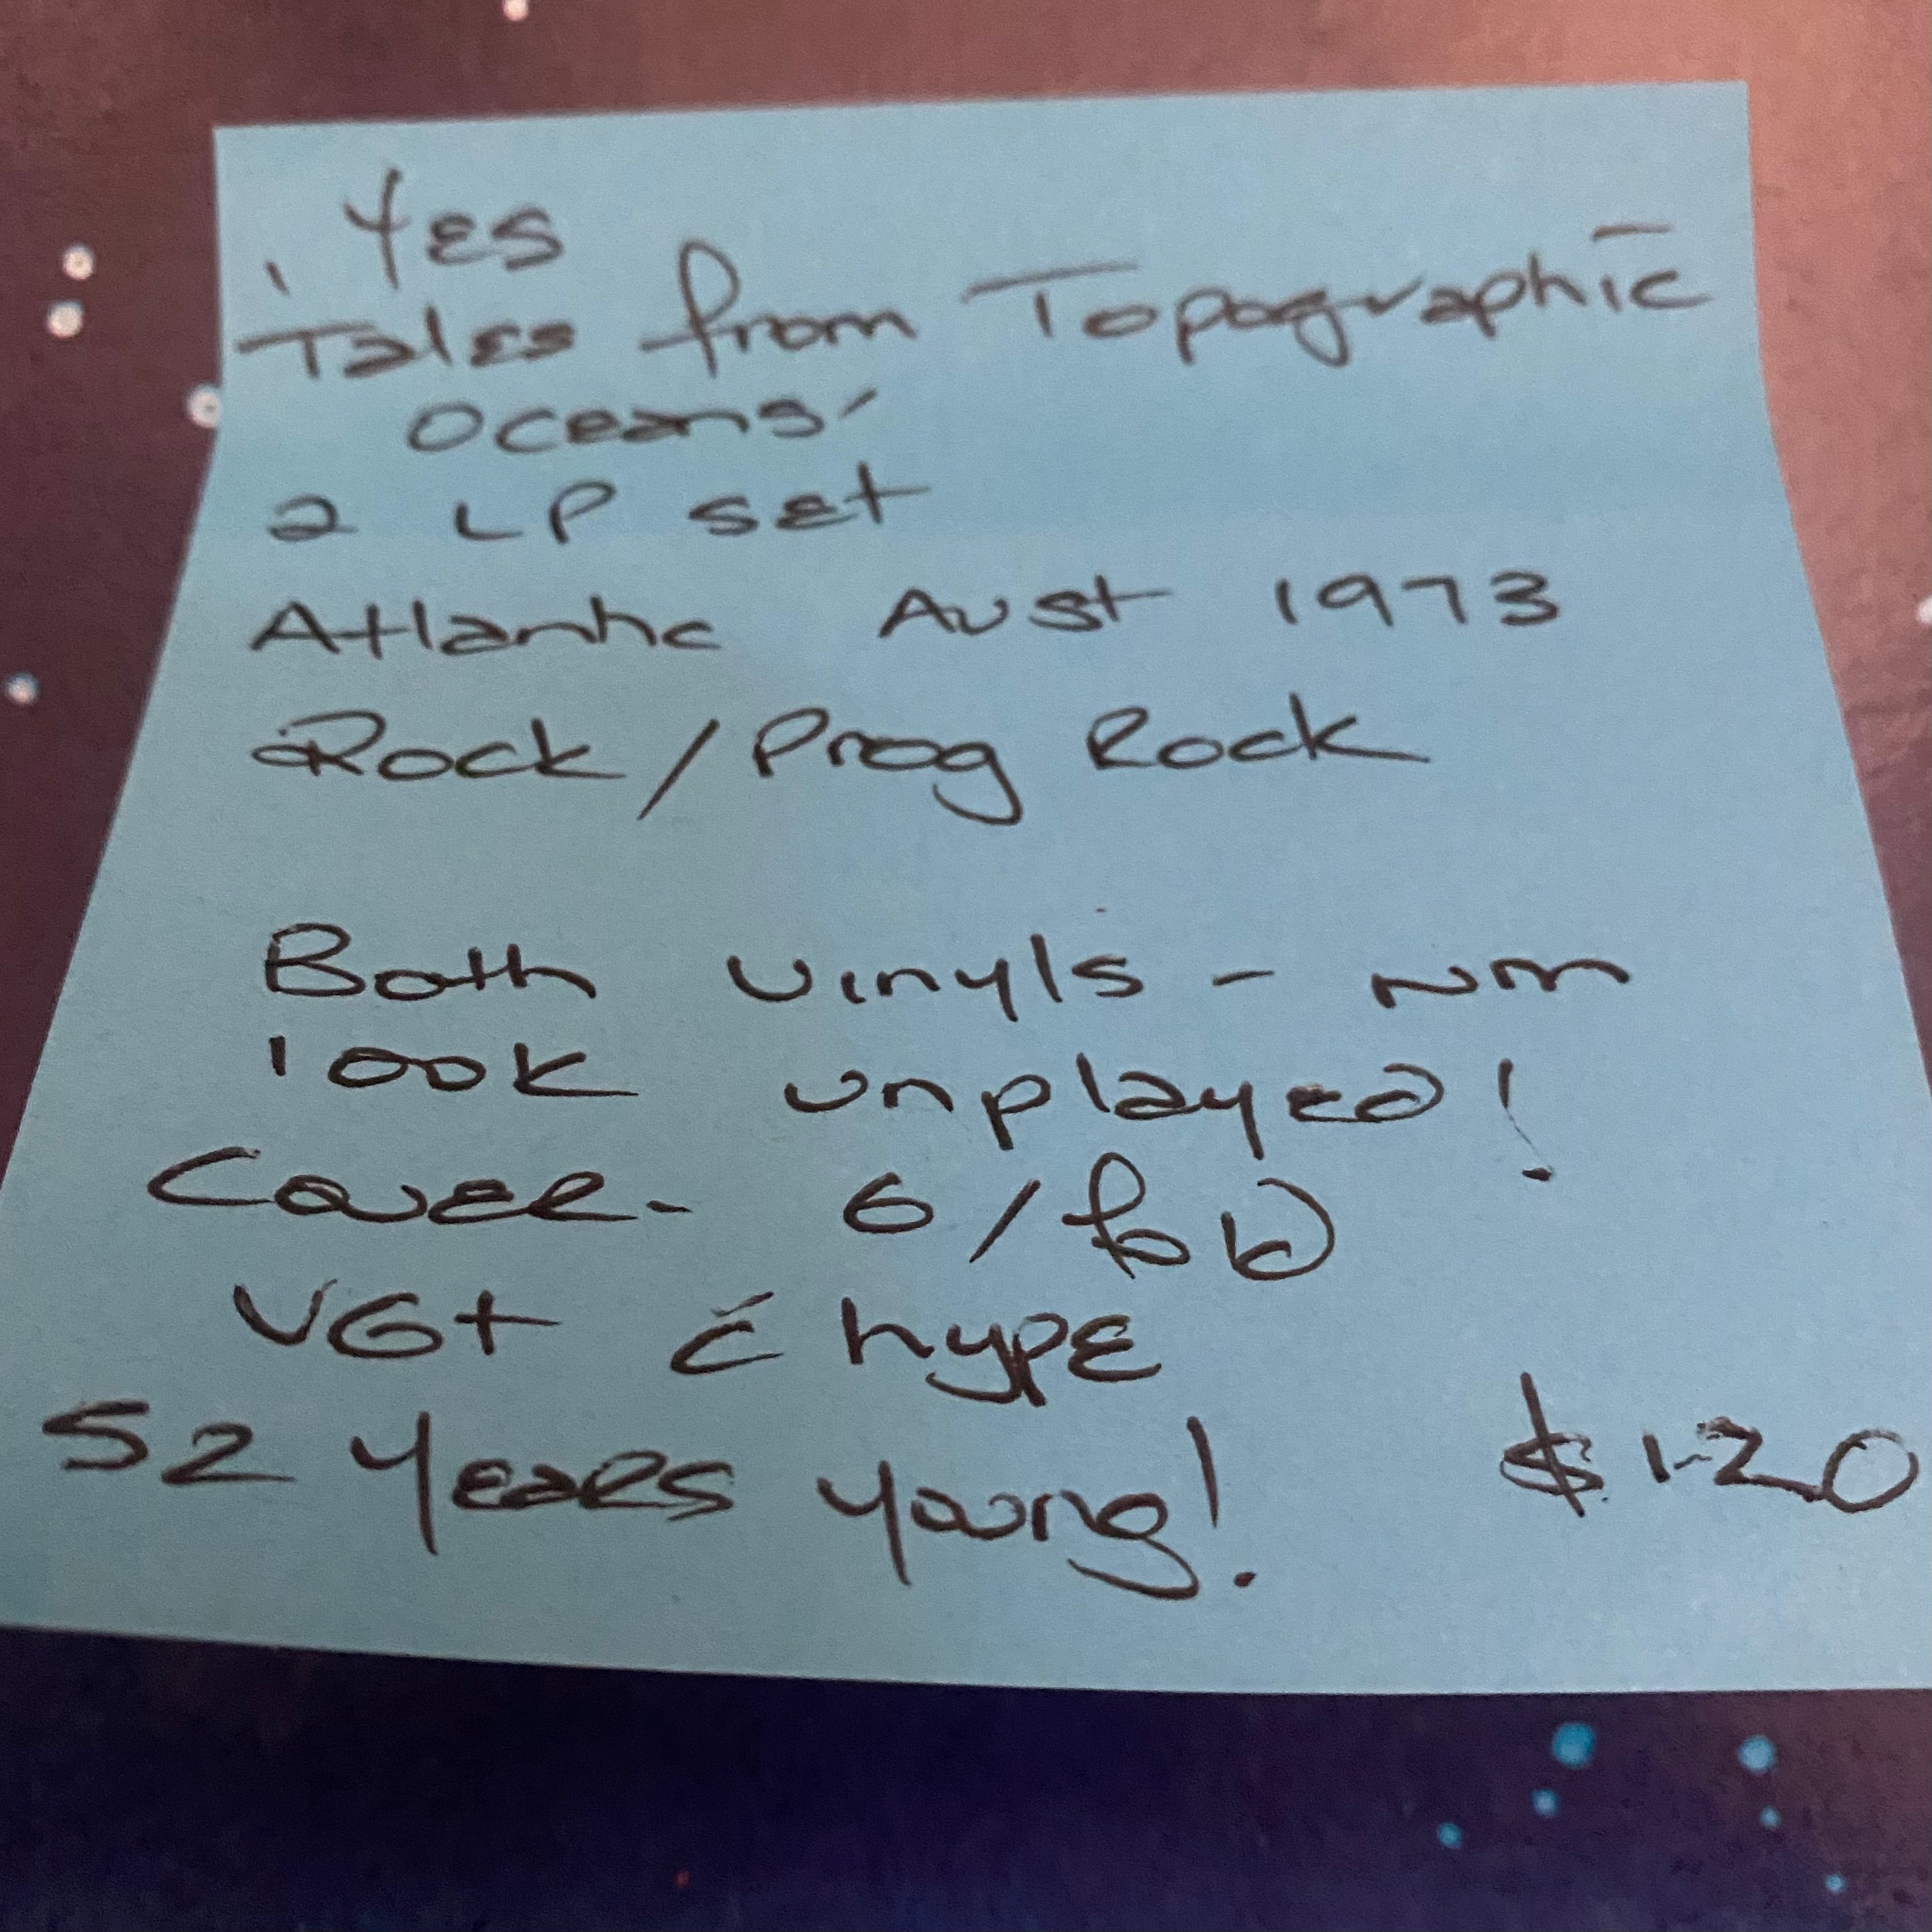 Yes
'Tales from Topographic
Oceans'
2 LP set
Atlantic Aust 1973
Rock / Prog Rock
Both vinyls - NM
look unplayed!
Cover - G/fold
VG+ c̄ hype
52 Years young! $120